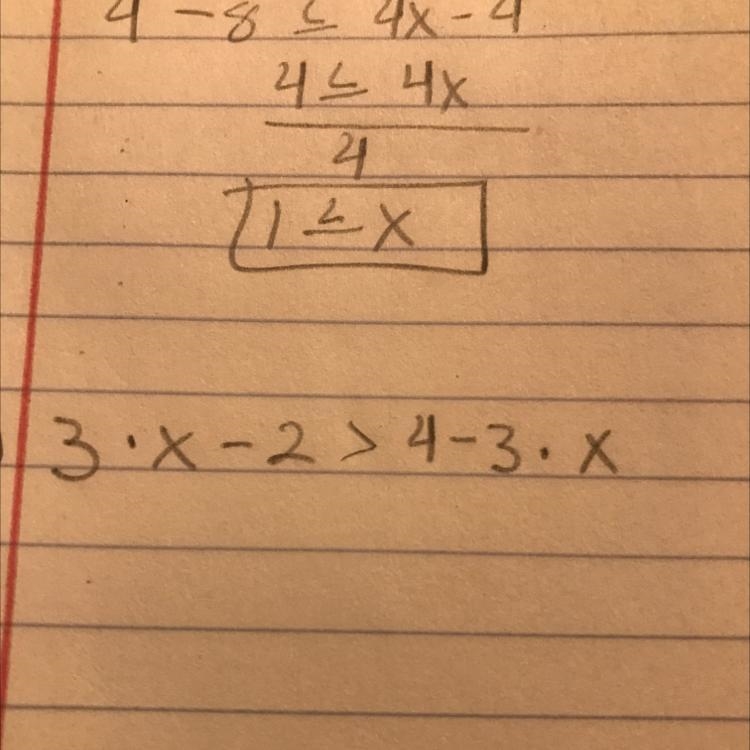 4 - 8 ≤ 4x - 4
4 ≤ 4x
4
1 ≤ x
) 3 · x - 2 > 4 - 3 · x